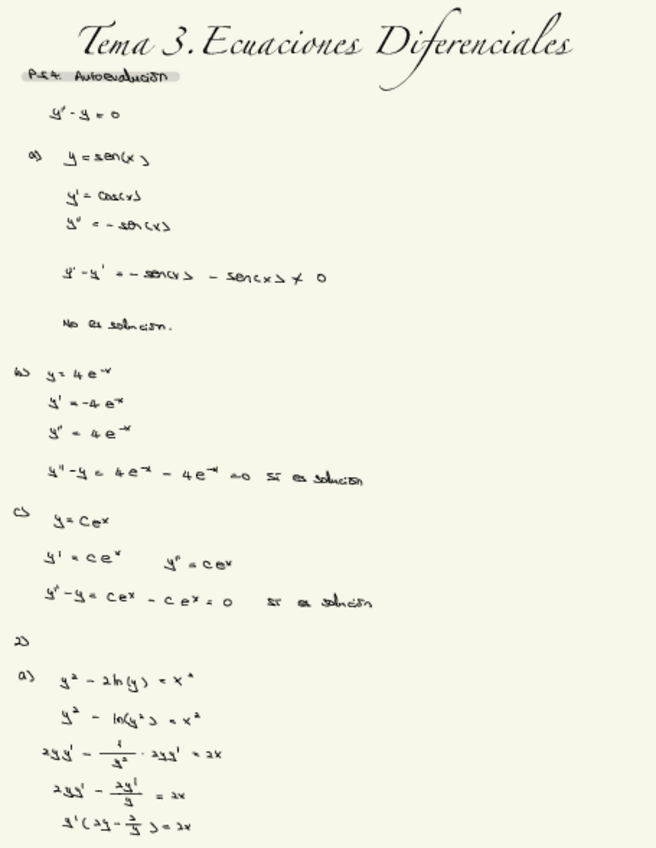 Tema 3. Ecuaciones Diferenciales
Autoevaluación
y'' - y = 0
a) y = sen(x)
y' = cos(x)
y'' = - sen(x)
y'' - y' = - sen(x) - sen(x) ≠ 0
No es solución.
b) y = 4e⁻ˣ
y' = -4eˣ
y'' = 4e⁻ˣ
y'' - y = 4e⁻ˣ - 4e⁻ˣ = 0 sí es solución
c) y = Ceˣ
y' = Ceˣ y'' = Ceˣ
y'' - y = Ceˣ - Ceˣ = 0 sí es solución
2)
a) y² - 2ln(y) = x²
y² - ln(y²) = x²
2yy' - 1/y² · 2yy' = 2x
2yy' - 2y'/y = 2x
y'(2y - 2/y) = 2x